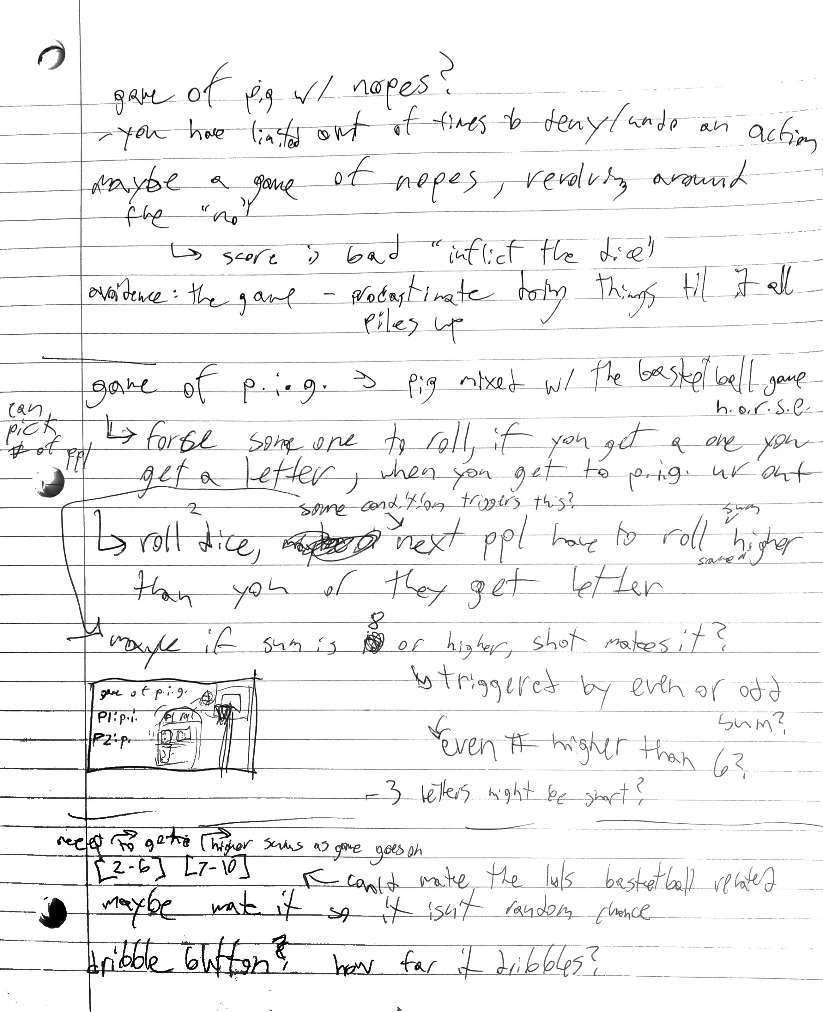 game of pig w/ nopes?
- you have limited amt of times to deny/undo an action
maybe a game of nopes, revolving around
the "no"
↳ score is bad "inflict the dice"
avoidence: the game - procastinate doing things til it all
piles up
game of p.i.g. → pig mixed w/ the basketball game
h.o.r.s.e.
can
pick
# of ppl
↳ force someone to roll, if you get a one you
get a letter, when you get to p.i.g. ur out
some condition triggers this?
↳ roll 2 dice, next ppl have to roll same sum higher
than you or they get letter
→ maybe if sum is 8 or higher, shot makes it?
↳ triggered by even or odd
sum?
even # higher than 6?
- 3 letters might be short?
game of p.i.g.
P1: p.i.
P2: p.
need to get higher sums as game goes on
[2-6] [7-10]
← could make the luls basketball related
maybe make it so it isn't random chance
dribble button? how far it dribbles?